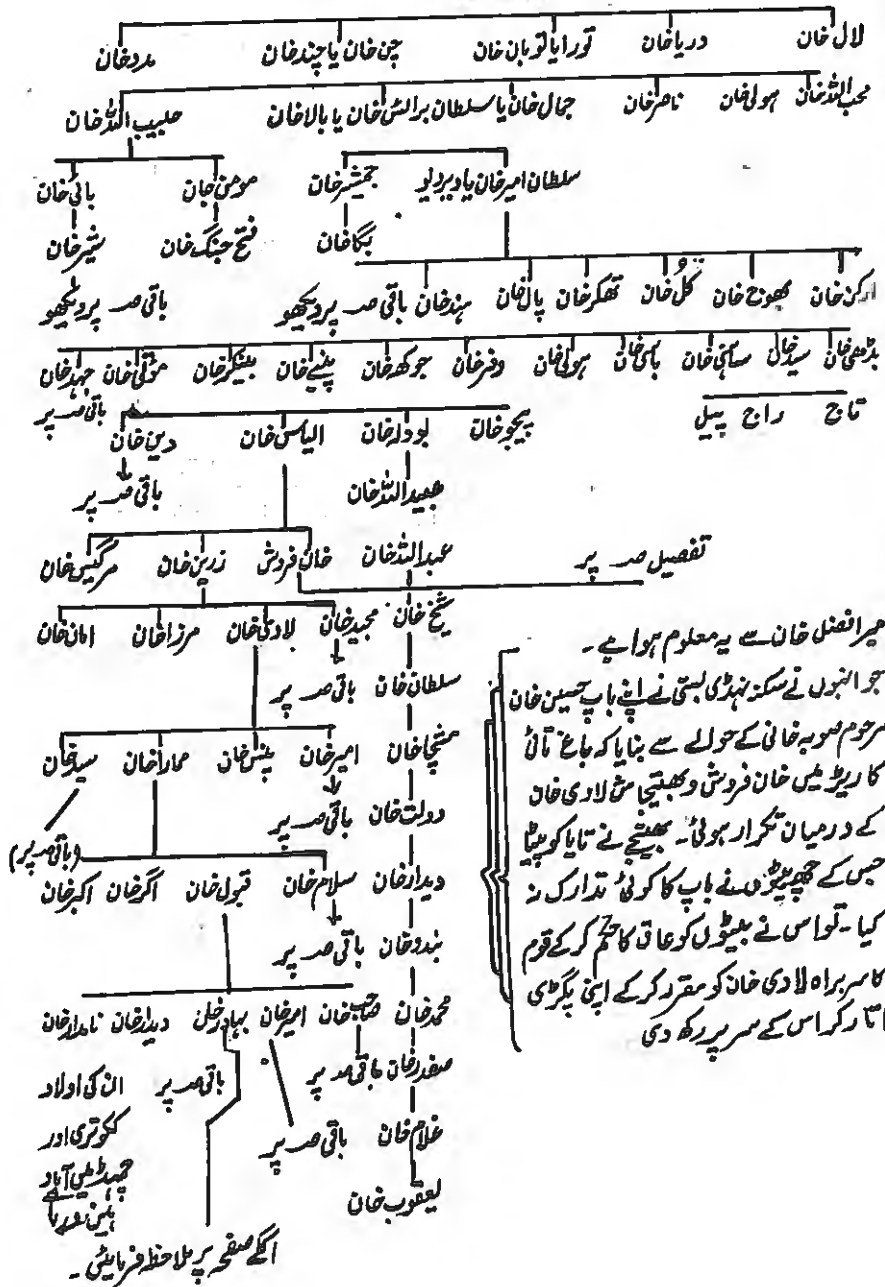 لال خان دریا خان تورا یا توہان خان چن خان یا چند خان مدد خان
محب اللہ خان ہولی خان ناصر خان جمال خان یا سلطان برالش خان یا بالا خان حبیب اللہ خان
سلطان امیر خان یا دیر دیو جمشیر خان مومن خان بائی خان
بگا خان فتح جنگ خان شیر خان
ارکن خان بھونج خان گل خان تھکر خان پال خان ہند خان باقی صہ پر دیکھو باقی صہ پر دیکھو
بڈھی خان سید خان ساہنی خان باسی خان ہولی خان وفر خان جوکھ خان پنے خان بھنیکر خان مؤتی خان جہد خان
تاج راج پیل باقی صہ پر
پیجو خان بودلہ خان الیاس خان دین خان
عبید اللہ خان باقی صہ پر
عبداللہ خان خان فروش زرین خان مرگیس خان
تفصیل صہ پر
شیخ خان مجید خان لادی خان مرزا خان امان خان
سلطان خان باقی صہ پر
منچا خان امیر خان پنس خان مارا خان سید خان
دولت خان باقی صہ پر (باقی صہ پر)
دیدار خان سلام خان قبول خان اگر خان اکبر خان
بندو خان باقی صہ پر
محمد خان صاحب خان امیر خان بہادر خان دیدار خان نامدار خان
صفدر خان باقی صہ پر باقی صہ پر ان کی اولاد
غلام خان باقی صہ پر ککوتری اور
یعقوب خان آباد
اگلے صفحہ پر ملاحظہ فرمائیں۔
میر افضل خان سے یہ معلوم ہوا ہے۔
جو انہوں نے سکنہ نہڈی بستی نے اپنے باپ حسین خان
مرحوم صوبہ خانی کے حوالے سے بتایا کہ باغ تائی
کاریڑ میں خان فروش و بھتیجا ش لادی خان
کے درمیان تکرار ہوئی۔ بھتیجے نے تایا کو پیٹا
جس کے چھ بیٹوں نے باپ کا کوئی تدارک نہ
کیا۔ تو اس نے بیٹوں کو عاق کا حکم کر کے قوم
کا سربراہ لادی خان کو مقرر کر کے اپنی پگڑی
اتار کر اس کے سر پر رکھ دی